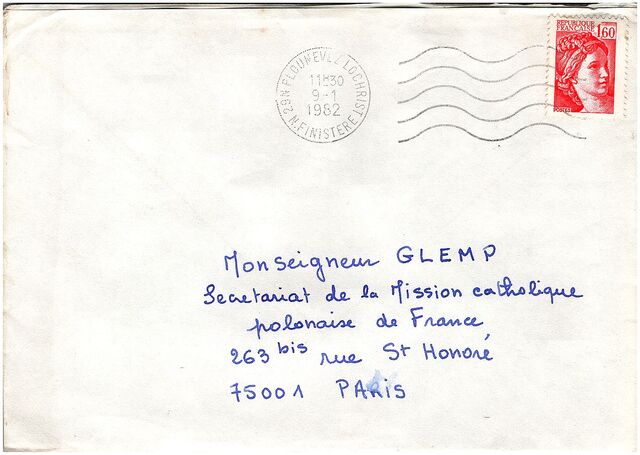 RÉPUBLIQUE
FRANÇAISE 1,60
POSTES
29N PLOUNEVEZ LOCHRIST
11H30
9-1
1982
N.FINISTERE
Monseigneur GLEMP
Secretariat de la Mission catholique
polonaise de France
263 bis rue St Honoré
75001 PARIS